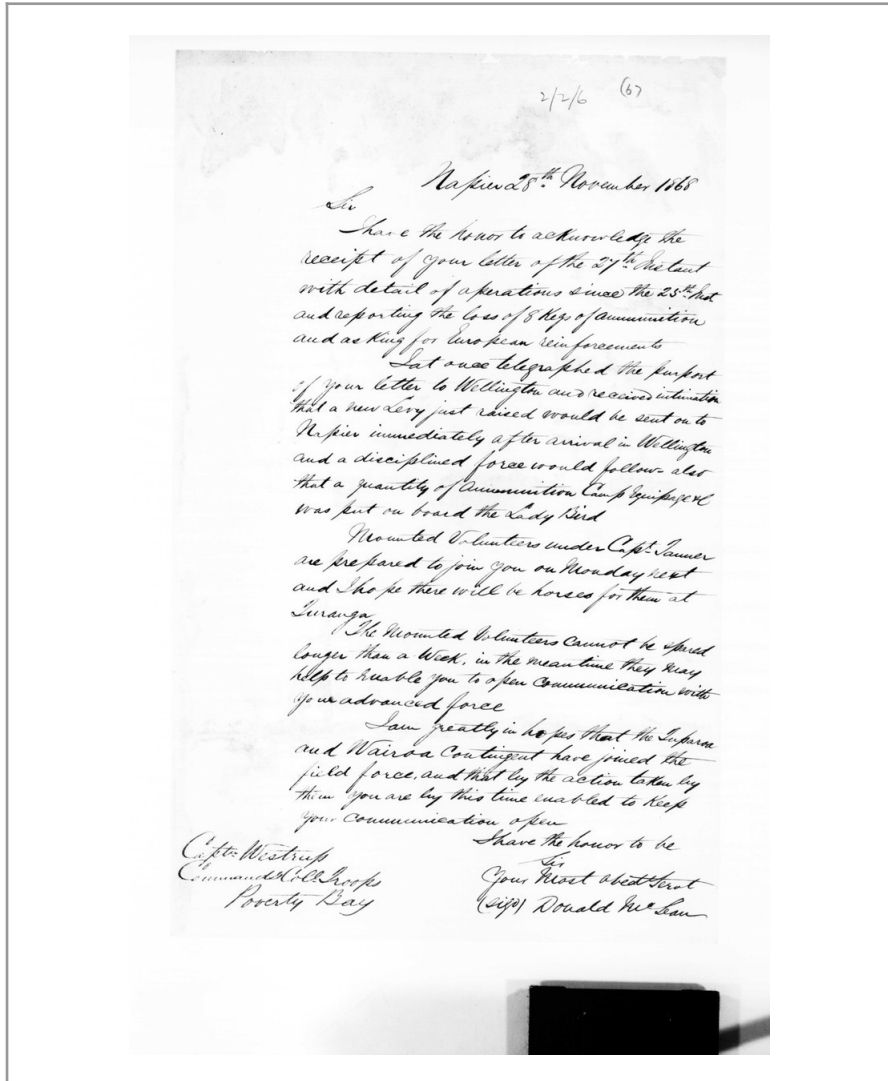 2/2/6 (6)
Napier 28th November 1868
Sir
I have the honor to acknowledge the
receipt of your letter of the 27th Instant
with detail of operations since the 25th Inst
and reporting the loss of 8 Kegs of ammunition
and asking for European reinforcements
I at once telegraphed the purport
of your letter to Wellington and received intimation
that a new Levy just raised would be sent on to
Napier immediately after arrival in Wellington
and a disciplined force would follow also
that a quantity of Ammunition Camp Equipage &c
was put on board the Lady Bird
Mounted Volunteers under Capt. Tanner
are prepared to join you on Monday next
and I hope there will be horses for them at
Turanga
The Mounted Volunteers cannot be spared
longer than a Week, in the meantime they may
help to Enable you to open Communication with
your advanced force
I am greatly in hopes that the
and Wairoa Contingent have joined the
field force, and that by the action taken by
them you are by this time enabled to Keep
your communication open
I have the honor to be
Sir
Your Most obedt Servt
(sigd) Donald McLean
Captn Westrup
Commandg Coll. Troops
Poverty Bay